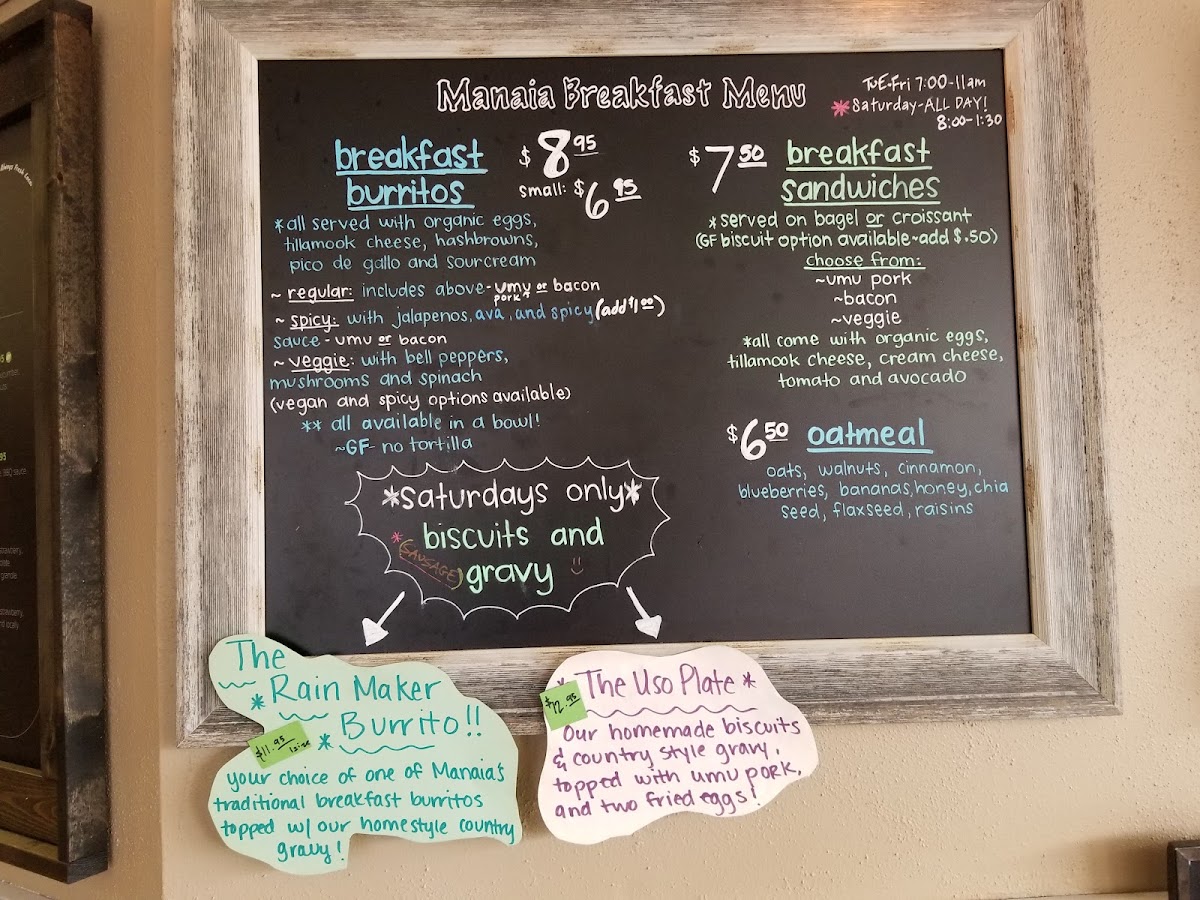 Manaia Breakfast Menu
TUE-Fri 7:00-11am
*Saturday-ALL DAY!
8:00-1:30
breakfast
burritos
$8.95
small: $6.95
*all served with organic eggs,
tillamook cheese, hashbrowns,
pico de gallo and sourcream
~ regular: includes above-umu or bacon
pork
~ spicy: with jalapenos, ava, and spicy (add $1.00)
sauce - umu or bacon
~ veggie: with bell peppers,
mushrooms and spinach
(vegan and spicy options available)
** all available in a bowl!
~GF- no tortilla
*saturdays only*
biscuits and
*(SAUSAGE) gravy
$7.50
breakfast
sandwiches
*served on bagel or croissant
(GF biscuit option available~add $.50)
choose from:
~umu pork
~bacon
~veggie
*all come with organic eggs,
tillamook cheese, cream cheese,
tomato and avocado
$6.50 oatmeal
oats, walnuts, cinnamon,
blueberries, bananas, honey, chia
seed, flaxseed, raisins
The
*Rain Maker
* Burrito!!
$11.95
your choice of one of Manaia's
traditional breakfast burritos
topped w/ our homestyle country
gravy!
*The Uso Plate*
$12.95
Our homemade biscuits
& country style gravy,
topped with umu pork,
and two fried eggs!